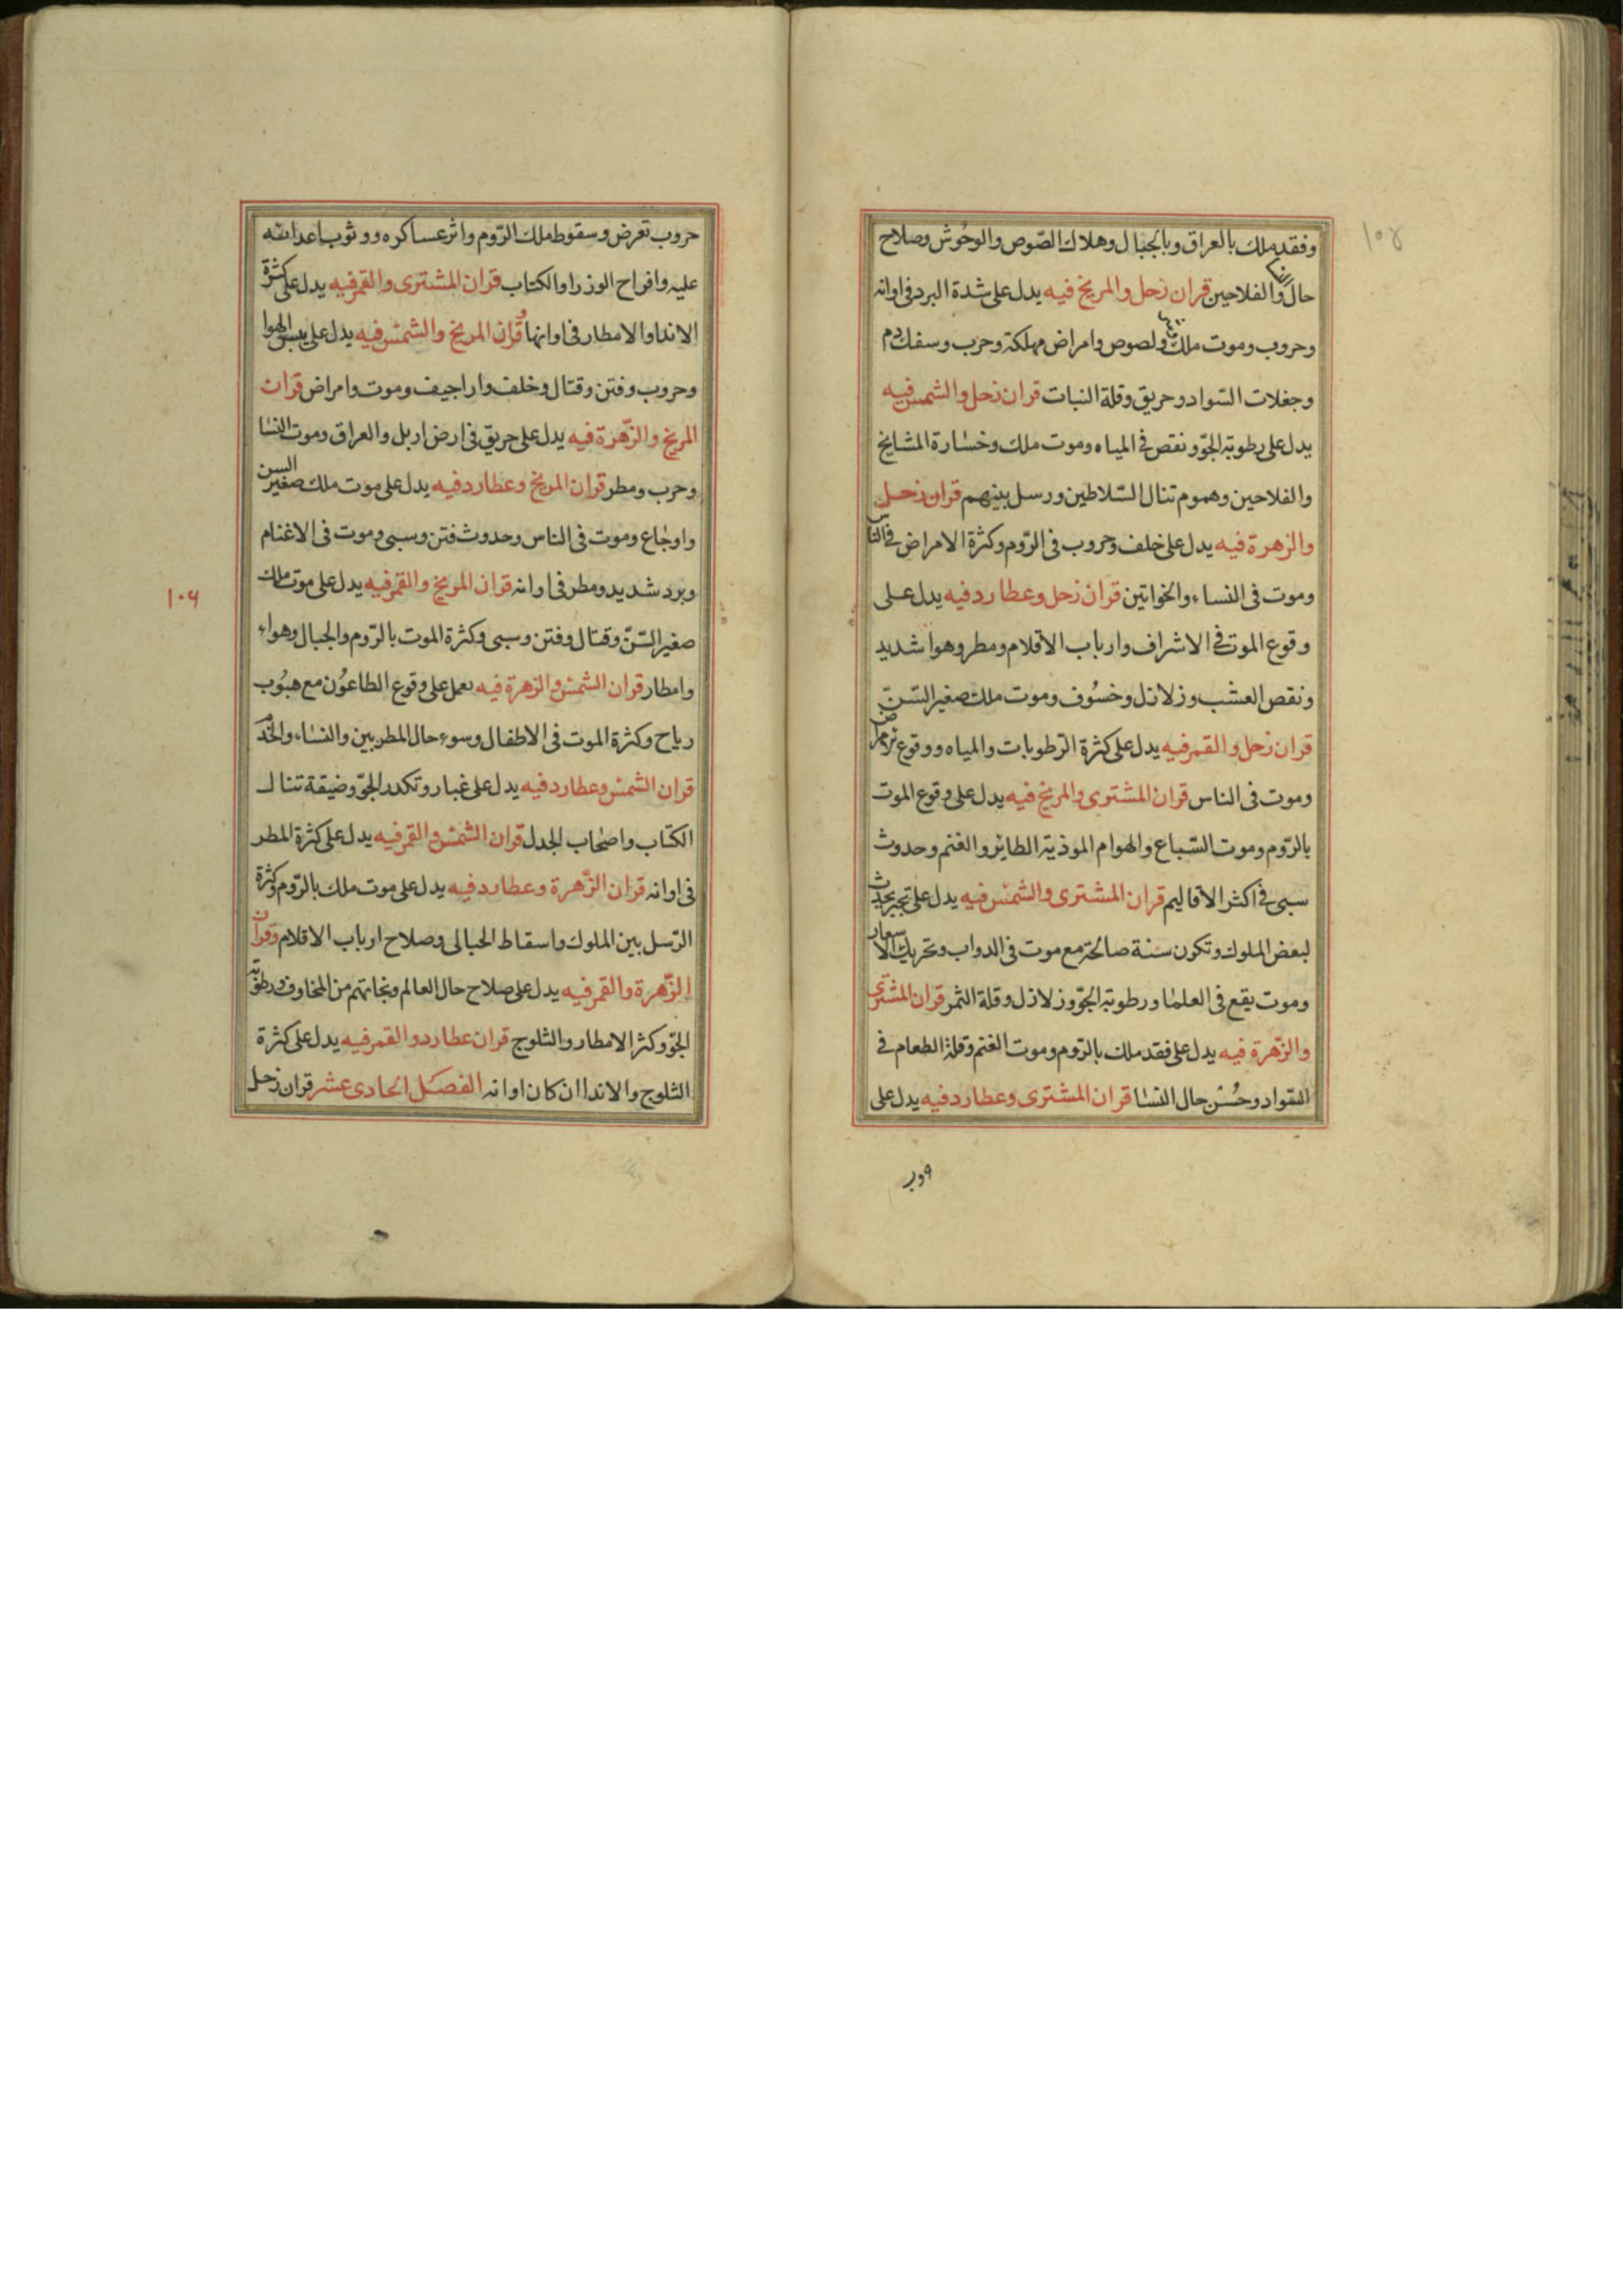 ١٠٥
وفقد ملك بالعراق وبالجبال وهلاك الصّوص والوحُوش وصلاح
حال والفلاحين قران زحل والمريخ فيه يدل على شدة البرد فى اوانه
وحروب وموت ملك ولصوص وامراض مهلكة وحرب وسفك دم
وجغلات السّواد وحريق وقلة النبات قران زحل والشمس فيه
يدل على رطوبة الجوّ ونقص فى المياه وموت ملك وخسارة المشايخ
والفلاحين وهموم تنال السّلاطين ورسل بينهم قران زحل
والزهرة فيه يدل على خلف وحروب فى الرّوم وكثرة الامراض فى الناس
وموت فى النساء والخواتين قران زحل وعطارد فيه يدل على
وقوع الموت فى الاشراف وارباب الاقلام ومطر وهوا شديد
ونقص العشب وزلازل وخسُوف وموت ملك صغير السّنّ
قران زحل والقمر فيه يدل على كثرة الرّطوبات والمياه ووقوع
وموت فى الناس قران المشترى والمريخ فيه يدل على وقوع الموت
بالرّوم وموت السّباع والهوام الموذية الطائر والغنم وحدوث
سبى فى اكثر الاقاليم قران المشترى والشمس فيه يدل على تجبر يحدث
لبعض الملوك وتكون سنة صالحة مع موت فى الدواب وتحريك الاسعار
وموت يقع فى العلما ورطوبة الجوّ وزلازل وقلة الثمر قران المشترى
والزّهرة فيه يدل على فقد ملك بالرّوم وموت الغنم وقلة الطعام فى
السّواد وحُسْن حال النسا قران المشترى وعطارد فيه يدل على
حروب تعرض وسقوط ملك الرّوم واثر عساكره ووثوب اعدائه
عليه وافراح الوزرا والكتاب قران المشترى والقمر فيه يدل على كثرة
الاندا والامطار فى اوانها وقران المريخ والشمس فيه يدل على يبس الهوا
وحروب وفتن وقتال وخلف واراجيف وموت وامراض قران
المريخ والزّهرة فيه يدل على حريق فى ارض اربل والعراق وموت النسا
وحرب ومطر قران المريخ وعطارد فيه يدل على موت ملك صغير السن
واوجاع وموت فى الناس وحدوث فتن وسبى وموت فى الاغنام
وبرد شديد ومطر فى اوانه قران المريخ والقمر فيه يدل على موت ملك
١٠٦
صغير السّنّ وقتال وفتن وسبى وكثرة الموت بالرّوم والجبال وهواء
وامطار قران الشمس والزهرة فيه يعمل على وقوع الطاعوُن مع هبُوب
رياح وكثرة الموت فى الاطفال وسوء حال المطربين والنساء والخدم
قران الشمس وعطارد فيه يدل على غبار وتكدر الجوّ وضيقة تنال
الكتاب واصحاب الجدل قران الشمس والقمر فيه يدل على كثرة المطر
فى اوانه قران الزّهرة وعطارد فيه يدل على موت ملك بالرّوم وكثرة
الرّسل بين الملوك واسقاط الحبالى وصلاح ارباب الاقلام وقران
الزّهرة والقمر فيه يدل على صلاح حال العالم ونجاتهم من المخاوف ورطوبة
الجوّ وكثر الامطار والثلوج قران عطارد والقمر فيه يدل على كثرة
الثلوج والاندا ان كان اوانه الفصل الحادى عشر قران زحل